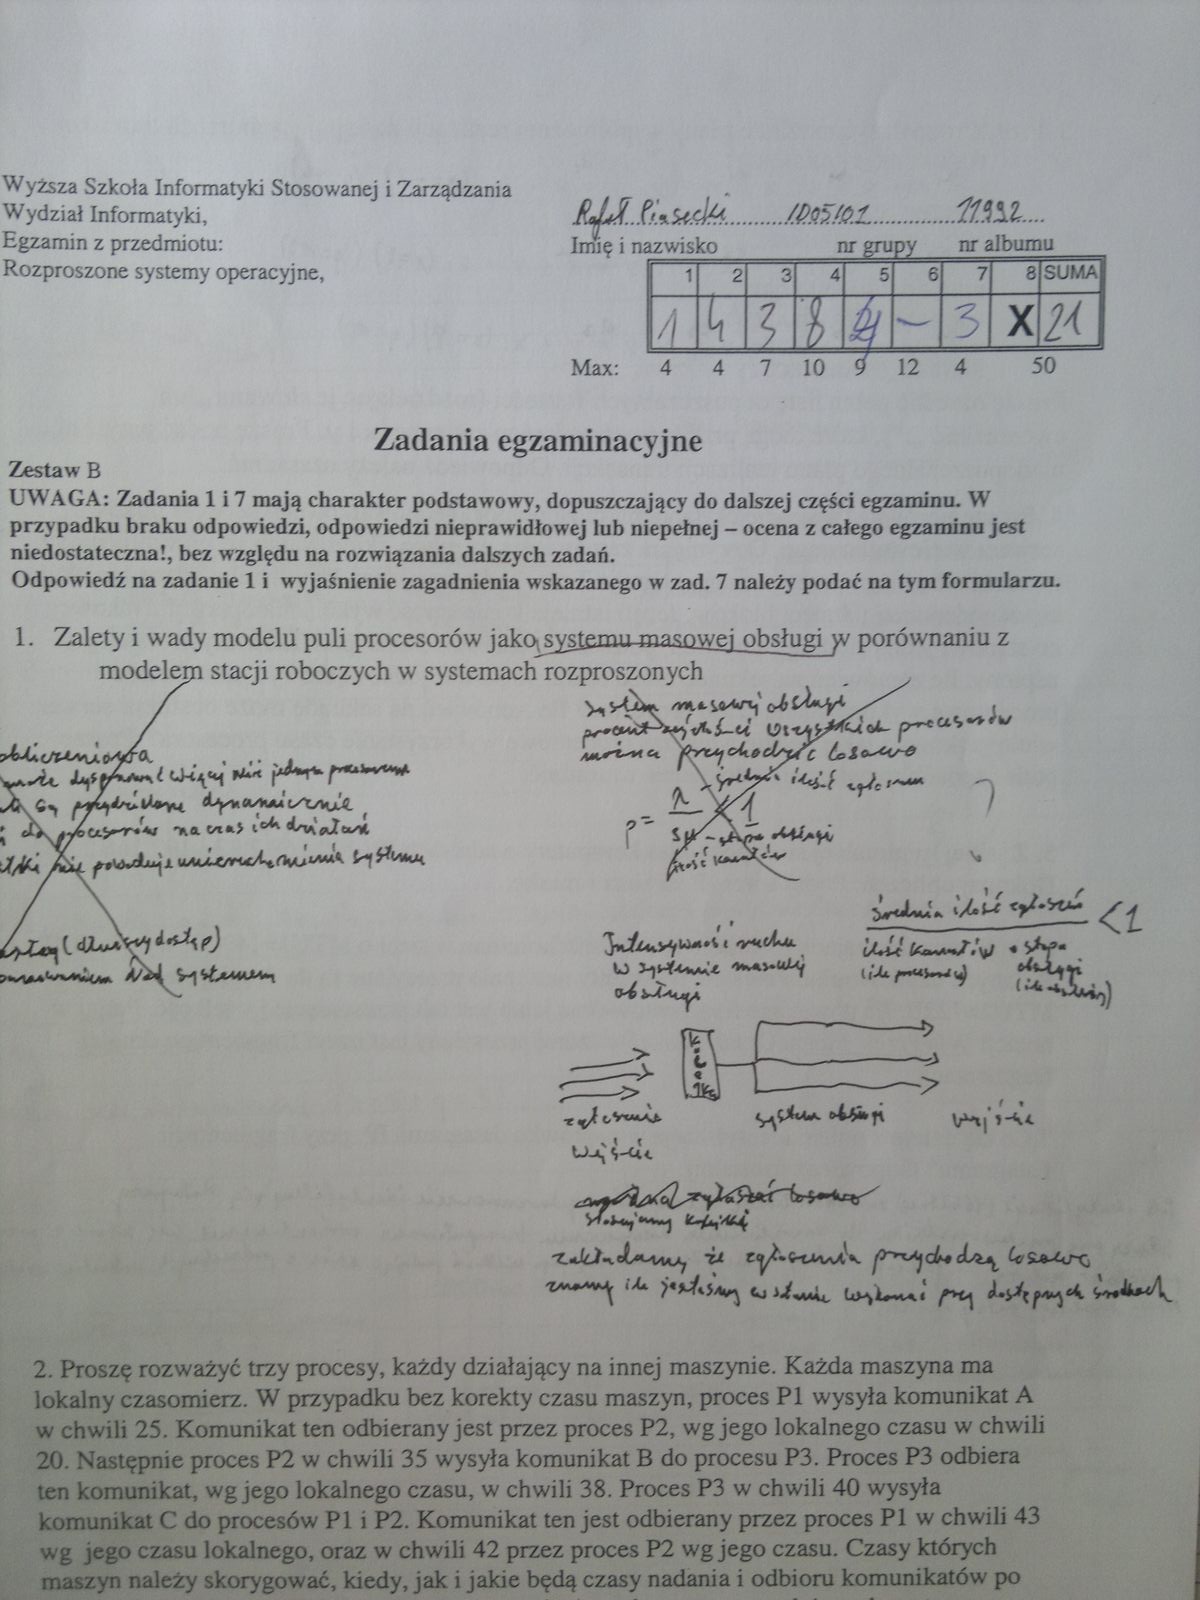 Wyższa Szkoła Informatyki Stosowanej i Zarządzania
Wydział Informatyki,
Egzamin z przedmiotu:
Rozproszone systemy operacyjne,
Rafał Piasecki ID05IO1 11992
Imię i nazwisko nr grupy nr albumu
1 2 3 4 5 6 7 8 SUMA
1 4 3 8 – 3 X 21
Max: 4 4 7 10 9 12 4 50
Zadania egzaminacyjne
Zestaw B
UWAGA: Zadania 1 i 7 mają charakter podstawowy, dopuszczający do dalszej części egzaminu. W
przypadku braku odpowiedzi, odpowiedzi nieprawidłowej lub niepełnej – ocena z całego egzaminu jest
niedostateczna!, bez względu na rozwiązania dalszych zadań.
Odpowiedź na zadanie 1 i wyjaśnienie zagadnienia wskazanego w zad. 7 należy podać na tym formularzu.
1. Zalety i wady modelu puli procesorów jako systemu masowej obsługi w porównaniu z
modelem stacji roboczych w systemach rozproszonych
system masowej obsługi
procent wszystkich procesorów
można przychodzić losowo
średnia ilość zgłoszeń
ρ = λ / sμ < 1
stopa obsługi
ilość kanałów
obliczeniowa
może dysponować więcej niż jednym procesorem
są przydzielane dynamicznie
do procesorów na czas ich działań
nie powoduje unieruchomienia systemu
(dłuższy dostęp)
nad systemem
Intensywność ruchu
w systemie masowej
obsługi
średnia ilość zgłoszeń < 1
ilość kanałów • stopa
obsługi
(ile procesorów)
kolejka
zgłoszenia system obsługi wyjście
wejście
zgłaszać losowo
stosujemy kolejkę
zakładamy że zgłoszenia przychodzą losowo
znamy ile jesteśmy w stanie wykonać przy dostępnych środkach
2. Proszę rozważyć trzy procesy, każdy działający na innej maszynie. Każda maszyna ma
lokalny czasomierz. W przypadku bez korekty czasu maszyn, proces P1 wysyła komunikat A
w chwili 25. Komunikat ten odbierany jest przez proces P2, wg jego lokalnego czasu w chwili
20. Następnie proces P2 w chwili 35 wysyła komunikat B do procesu P3. Proces P3 odbiera
ten komunikat, wg jego lokalnego czasu, w chwili 38. Proces P3 w chwili 40 wysyła
komunikat C do procesów P1 i P2. Komunikat ten jest odbierany przez proces P1 w chwili 43
wg jego czasu lokalnego, oraz w chwili 42 przez proces P2 wg jego czasu. Czasy których
maszyn należy skorygować, kiedy, jak i jakie będą czasy nadania i odbioru komunikatów po